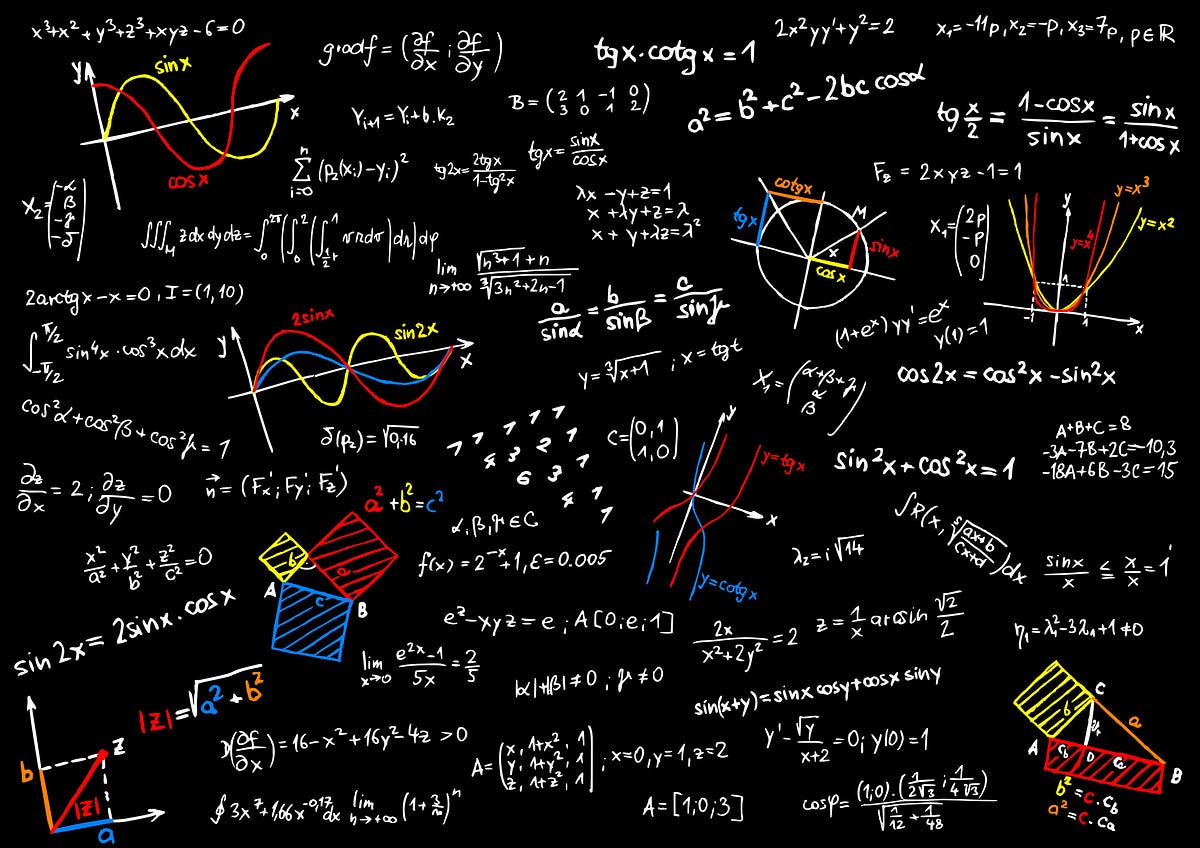 x³+x²+y³+z³+xyz-6=0
gradf = (∂f/∂x ; ∂f/∂y)
tgx·cotgx=1
2x²yy'+y²=2
x₁=-11p, x₂=-p, x₃=7p, p∈ℝ
y
sinx
x
cosx
Yᵢ₊₁=Yᵢ+b·k₂
B=(2 1 -1 0
3 0 1 2)
a²=b²+c²-2bc cosα
tg x/2 = (1-cosx)/sinx = sinx/(1+cosx)
∑ᵢ₌₀ⁿ (p₂(xᵢ)-yᵢ)²
tg2x = 2tgx/(1-tg²x)
tgx = sinx/cosx
F_z = 2xyz-1=1
λx-y+z=1
x+λy+z=λ
x+y+λz=λ²
cotgx
tgx
M
sinx
x
cosx
X₂=(-α
β
-γ
-δ)
X₁=(2p
-p
0)
y
y=x³
y=x²
y=x⁴
1
-1
1
x
∭_M zdxdydz=
lim n→+∞ (√(n³+1)+n)/∛(3n²+2n-1)
2arctgx-x=0, I=(1,10)
a/sinα = b/sinβ = c/sinγ
(1+eˣ)yy'=eˣ
y(1)=1
∫ -π/2 π/2 sin⁴x·cos³xdx
y
2sinx
sin2x
x
y=∛(x+1) ; x=tgt
X₁=(α+β+γ
α
β)
cos2x=cos²x-sin²x
cos²α+cos²β+cos²γ=1
δ(p₂)=√0,16
1 1 1 1 1
4 3 2 1
6 3 1
4 1
1
C=(0,1
1,0)
y
y=tgx
x
y=cotgx
sin²x+cos²x=1
A+B+C=8
-3A-7B+2C=-10,3
-18A+6B-3C=15
∂z/∂x=2; ∂z/∂y=0
n⃗=(Fx'; Fy'; Fz')
a²+b²=c²
b
a
c
A
B
α,β,γ∈C
∫R(x, √((ax+b)/(cx+d)))dx
x²/a²+y²/b²+z²/c²=0
f(x)=2⁻ˣ+1, ε=0.005
λ₂=i√14
sinx/x ≤ x/x=1
sin2x=2sinx·cosx
e²-xyz=e; A[0;e;1]
2x/(x²+2y²)=2
z=1/x arcsin √2/2
η₁=λ₁²-3λ₁+1≠0
lim x→0 (e²ˣ-1)/5x=2/5
|α|+|β|≠0; γ≠0
sin(x+y)=sinxcosy+cosxsiny
|z|=√(a²+b²)
b
z
|z|
a
(∂f/∂x)=16-x²+16y²-4z>0
A=(x, 1+x², 1
y, 1+y², 1
z, 1+z², 1); x=0, y=1, z=2
y'-√y/(x+2)=0; y(0)=1
C
b
a
A
c_b
D
c_a
B
b²=c·c_b
a²=c·c_a
∮3x⁷+1,66x⁻⁰·¹⁷dx
lim n→+∞ (1+3/n)ⁿ
A=[1;0;3]
cosφ=((1;0)·(1/(2√3); 1/(4√3)))/√(1/12+1/48)